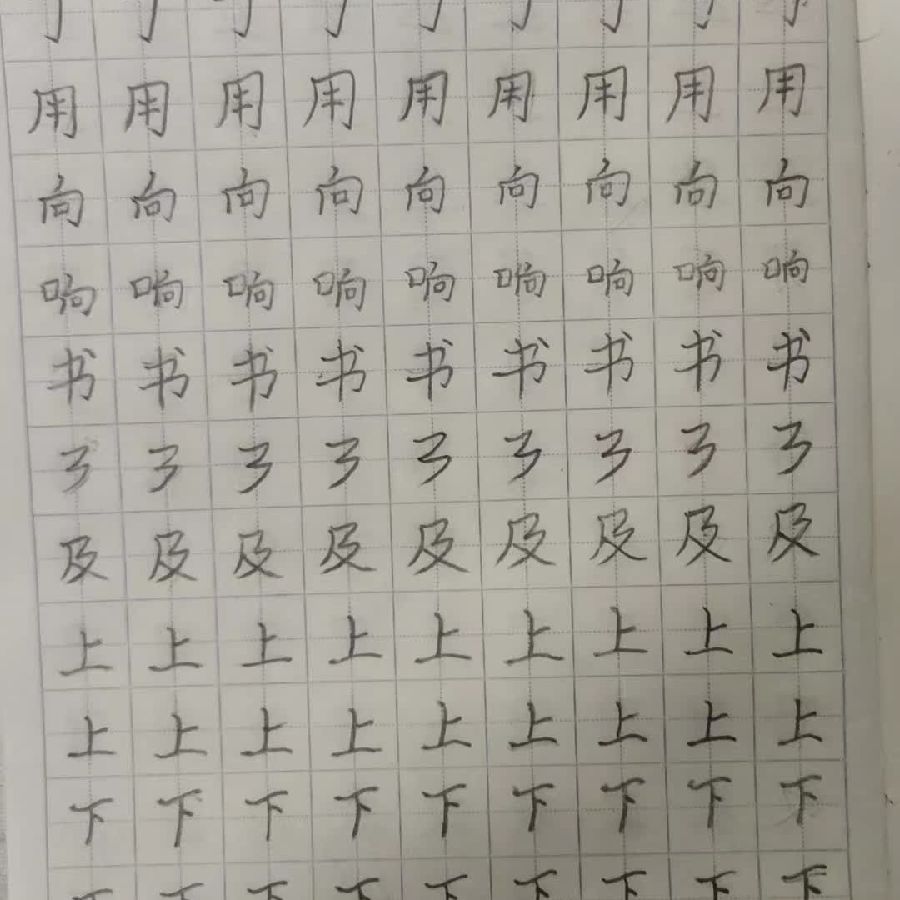 用用用用用用用用用
向向向向向向向向向
响响响响响响响响响
书书书书书书书书书
及及及及及及及及及
上上上上上上上上上
上上上上上上上上上
下下下下下下下下下